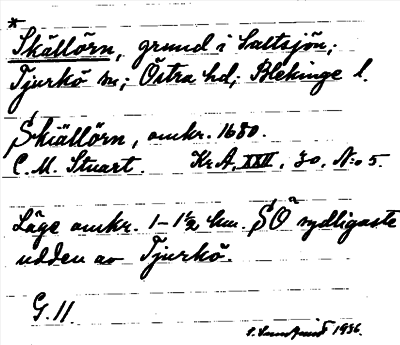 *
Skällörn, grund i Saltsjön;
Tjurkö sn; Östra hd; Blekinge l.
Skiällörn, omkr. 1680.
C.M. Stuart. Kr.A. XXII, 30, N:o 5.
Läge omkr. 1-1½ km. SO sydligaste
udden av Tjurkö.
G. 11.
1936